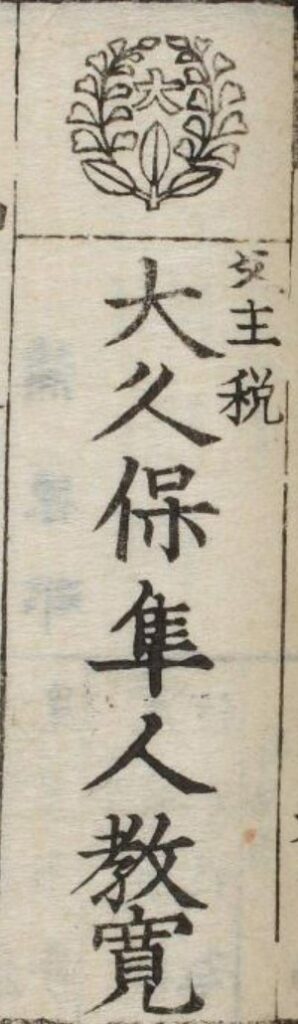 大
父主税
大久保隼人教寛